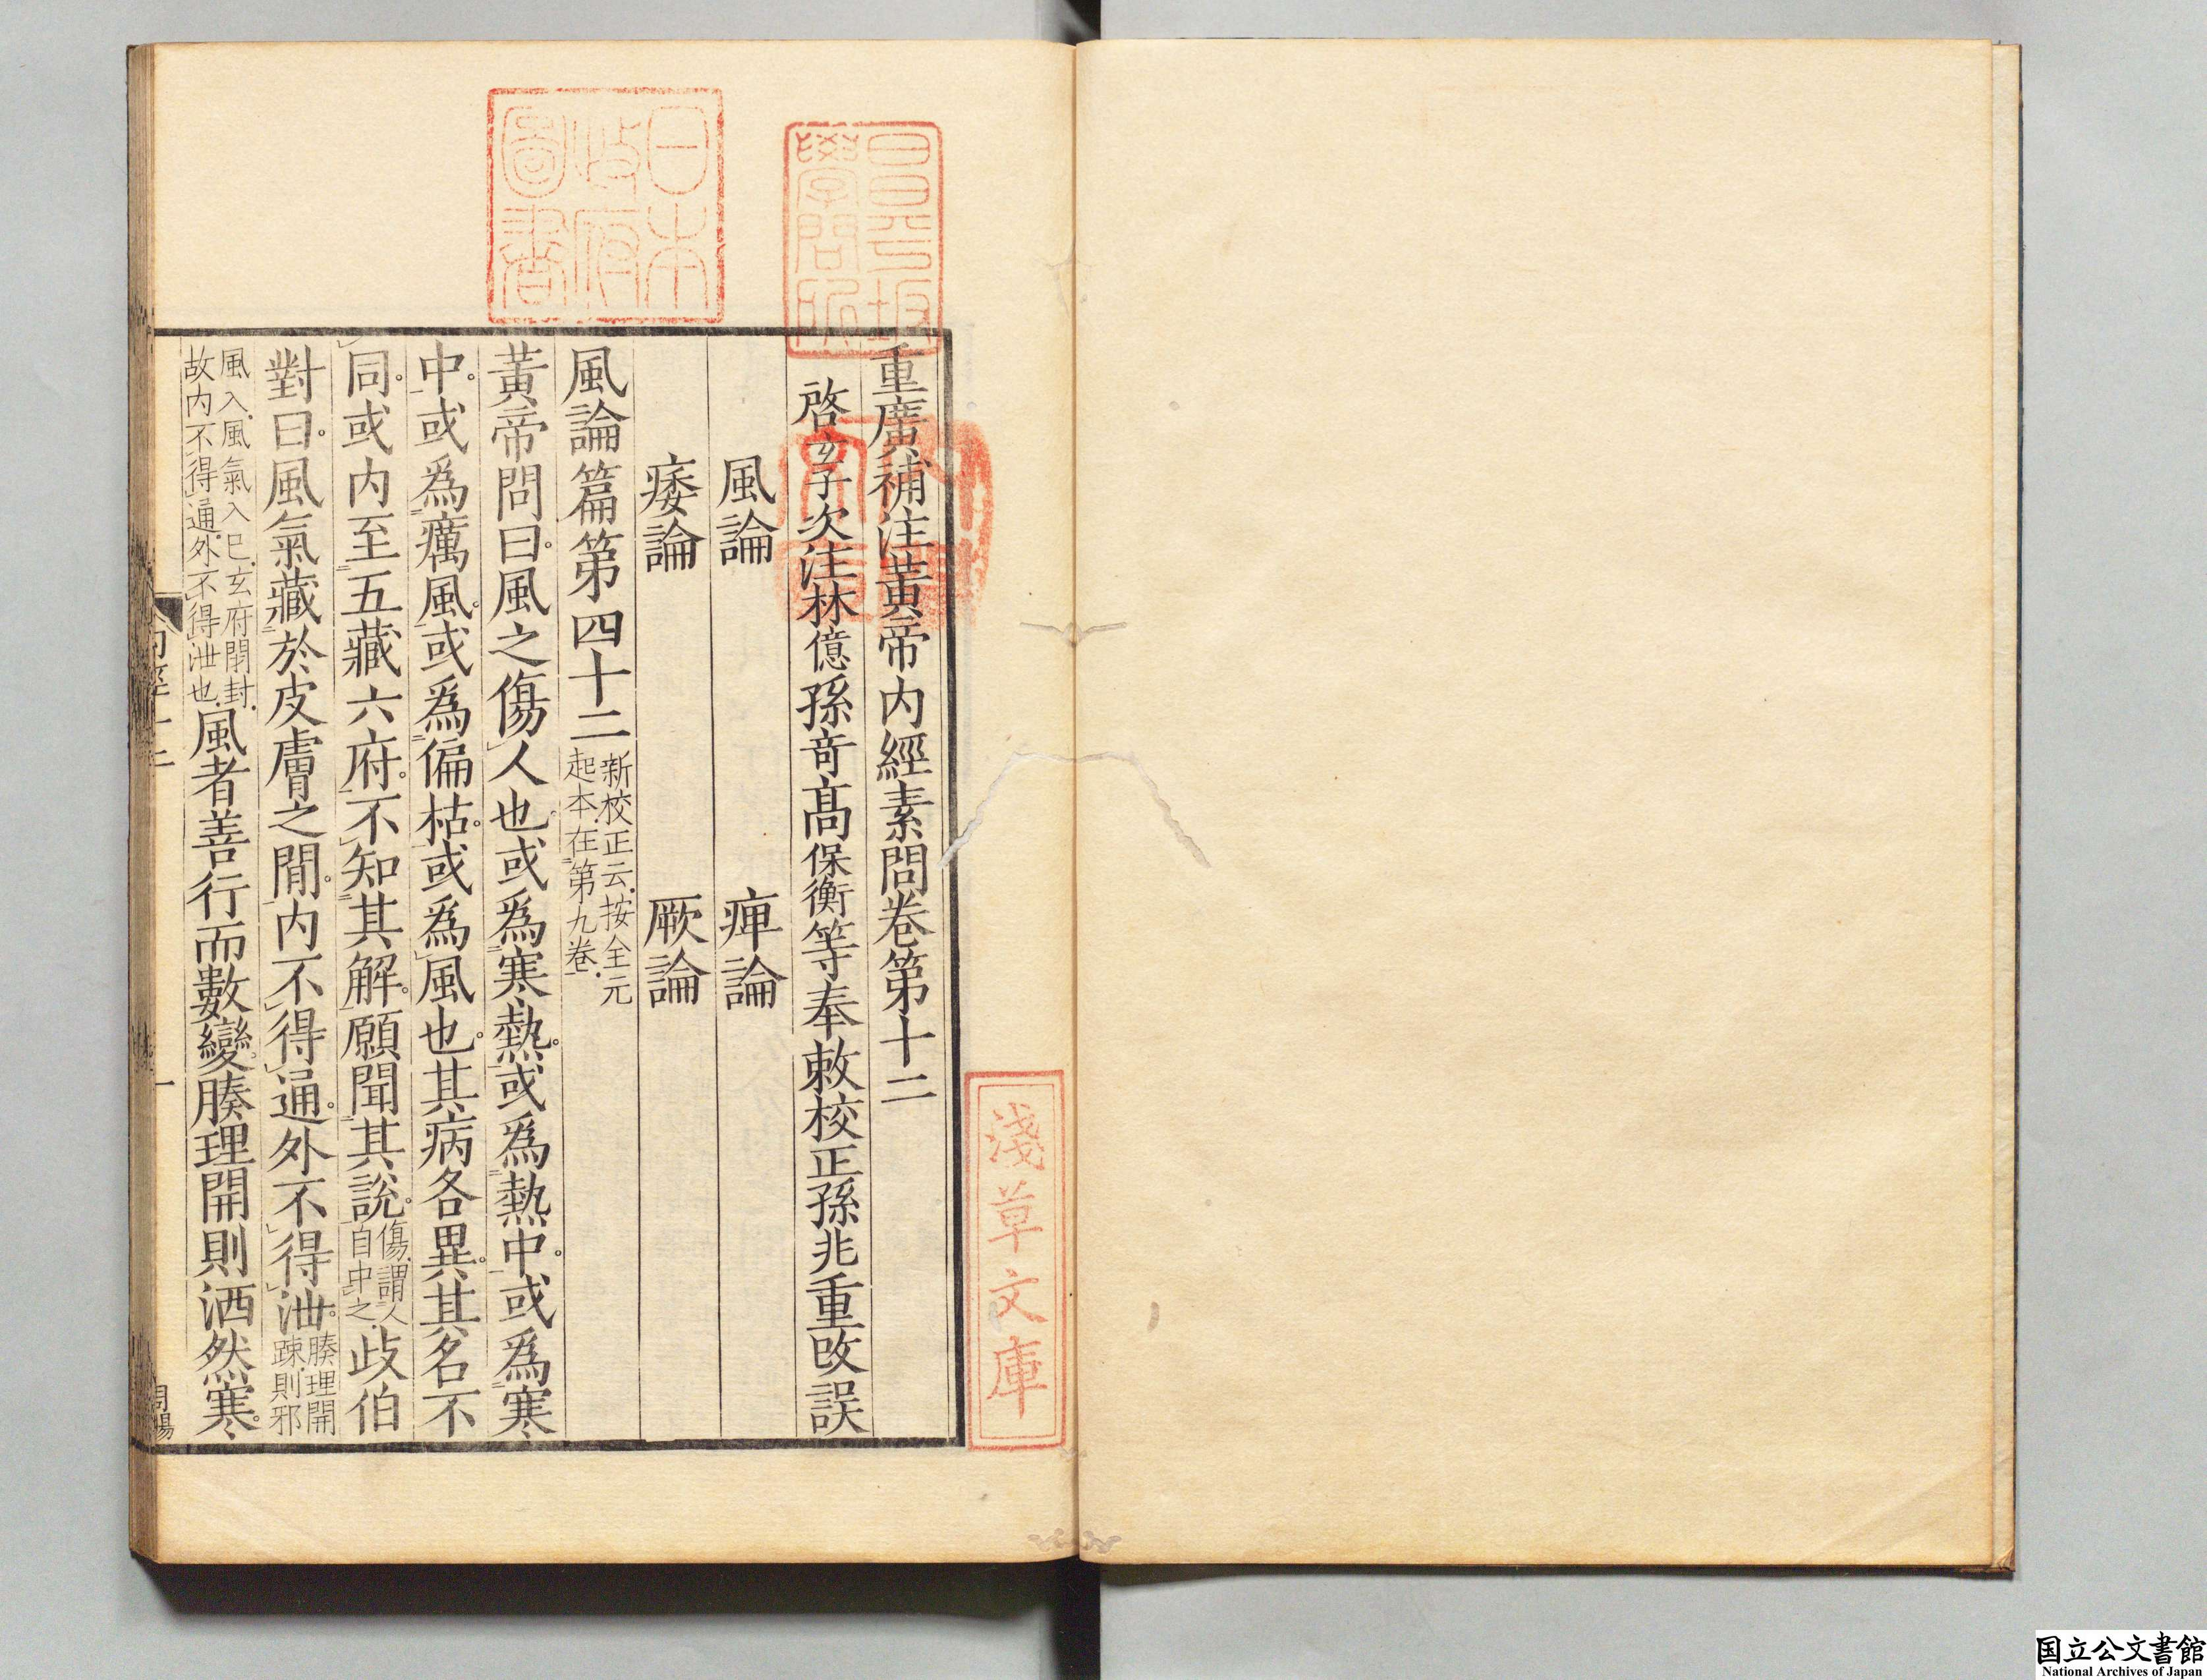 重廣補注黃帝内經素問卷第十二
啓玄子次注林億孫竒高保衡等奉敕校正孫兆重改誤
風論　痺論
痿論　厥論
風論篇第四十二新校正云按全元起本在第九卷
黃帝問曰風之傷人也或爲寒熱或爲熱中或爲寒
中或爲癘風或爲偏枯或爲風也其病各異其名不
同或内至五藏六府不知其解願聞其說傷謂人自中之歧伯
對曰風氣藏於皮膚之閒内不得通外不得泄腠理開踈則邪
風入風氣入已玄府閉封故内不得通外不得泄也風者善行而數變腠理開則洒然寒
日本政府圖書
昌平坂學問所
淺草文庫
国立公文書館
National Archives of Japan